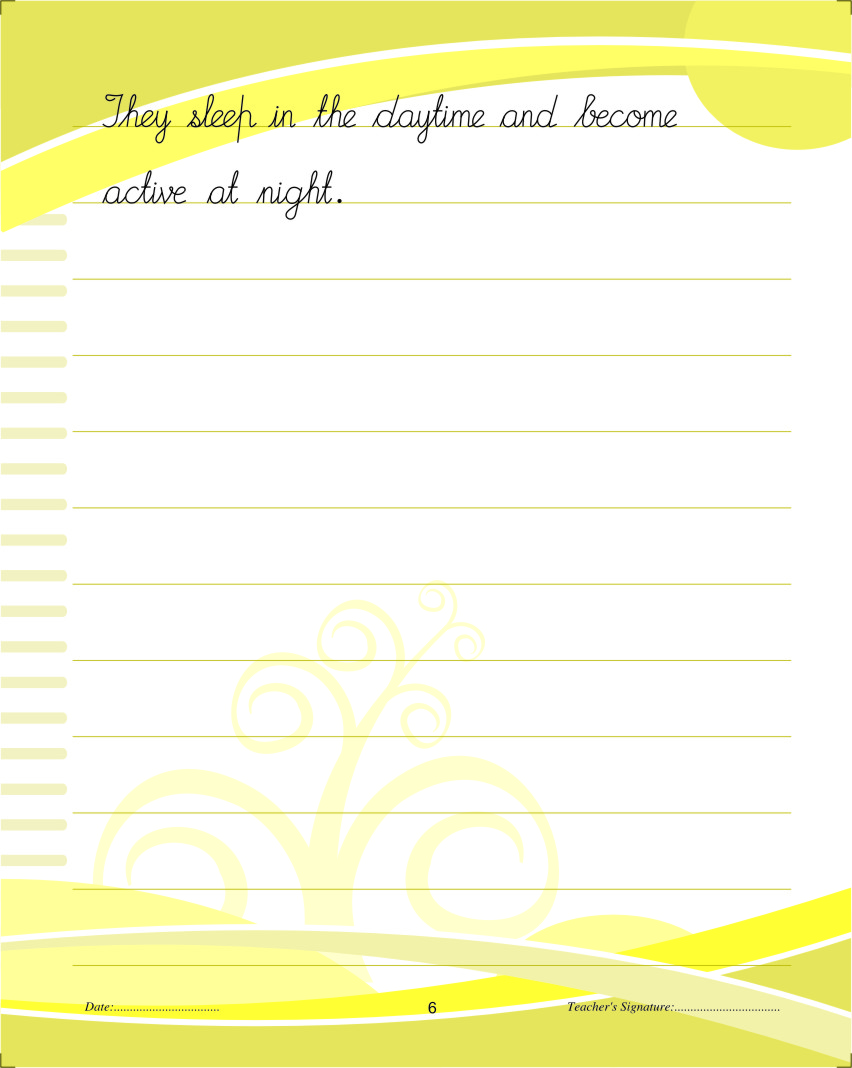 They sleep in the daytime and become
active at night.
Date:.................................
6
Teacher's Signature:.................................